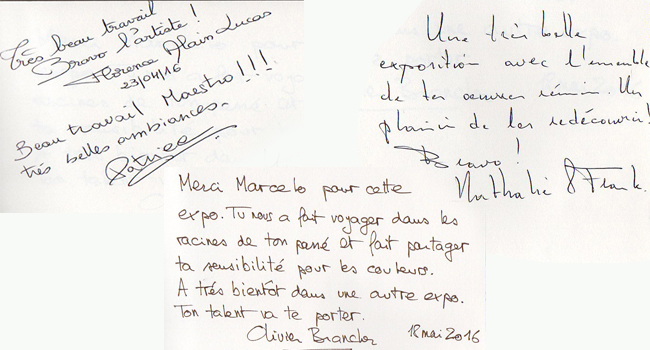 Très beau travail
Bravo l'artiste !
Florence Alain Lucas
23/04/16
Beau travail Maestro !!!
très belles ambiances.
Patrice
Une très belle
exposition avec l'ensemble
de tes oeuvres réunin. Un
plaisir de les redécouvrir !
Bravo !
Nathalie & Frank.
Merci Marcelo pour cette
expo. Tu nous a fait voyager dans les
racines de ton passé et fait partager
ta sensibilité pour les couleurs.
A trés bientôt dans une autre expo.
Ton talent va te porter.
Olivier 18 mai 2016